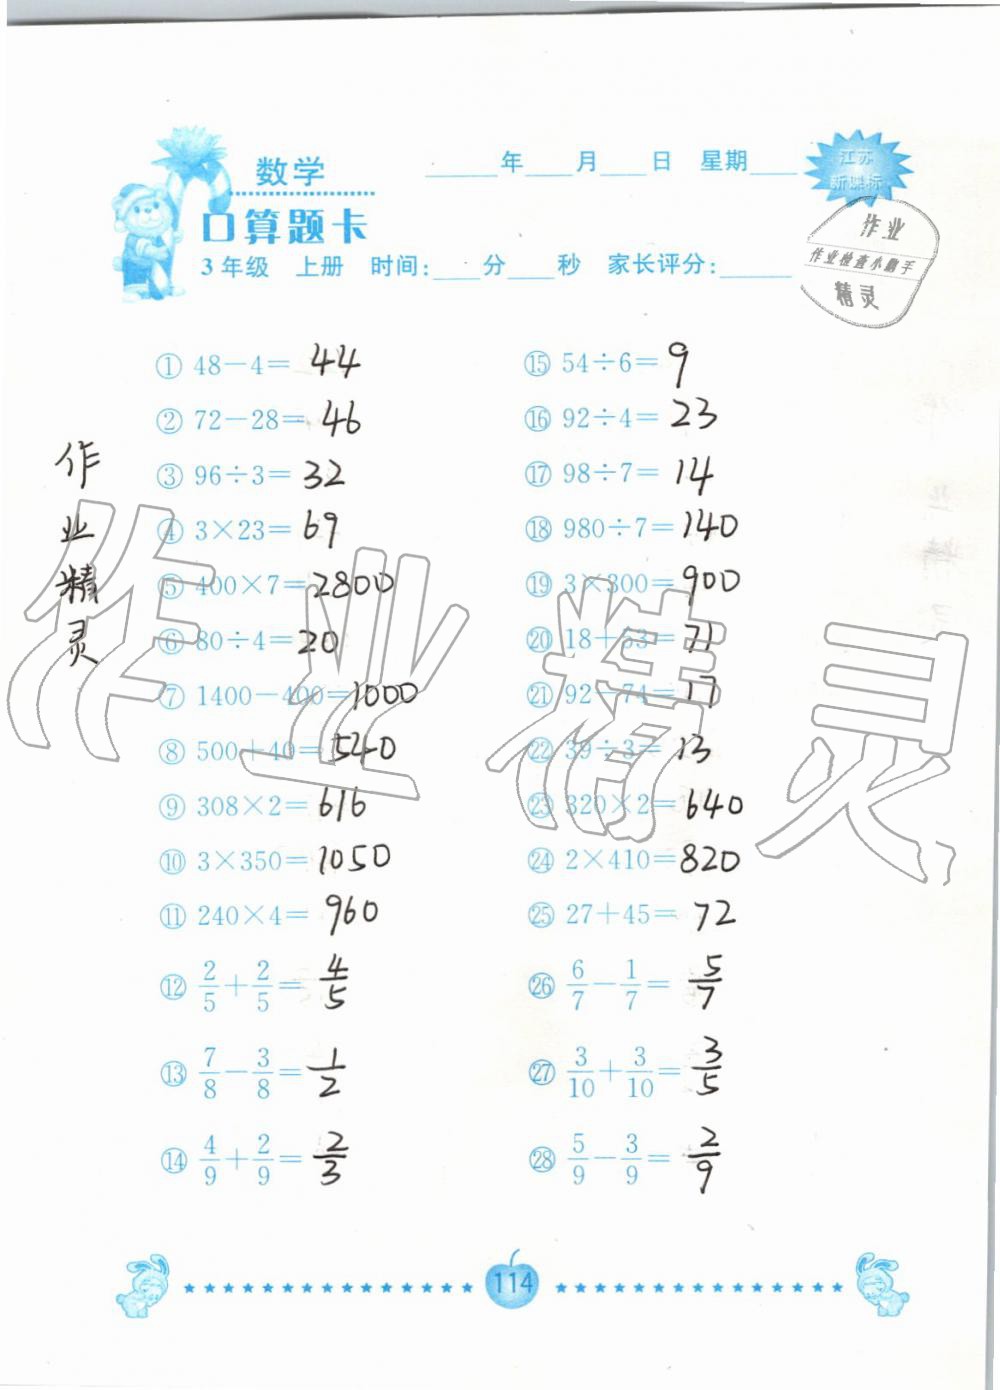 数学
____年____月____日 星期____
江苏
新课标
口算题卡
3年级 上册 时间:____分____秒 家长评分:______
作业
作业检查小助手
精灵
① 48－4＝ 44
② 72－28＝ 46
③ 96÷3＝ 32
④ 3×23＝ 69
⑤ 400×7＝ 2800
⑥ 80÷4＝ 20
⑦ 1400－400＝ 1000
⑧ 500＋40＝ 540
⑨ 308×2＝ 616
⑩ 3×350＝ 1050
⑪ 240×4＝ 960
⑫ 2/5＋2/5＝ 4/5
⑬ 7/8－3/8＝ 1/2
⑭ 4/9＋2/9＝ 2/3
⑮ 54÷6＝ 9
⑯ 92÷4＝ 23
⑰ 98÷7＝ 14
⑱ 980÷7＝ 140
⑲ 3×300＝ 900
⑳ 18＋53＝ 71
㉑ 92－74＝ 17
㉒ 39÷3＝ 13
㉓ 320×2＝ 640
㉔ 2×410＝ 820
㉕ 27＋45＝ 72
㉖ 6/7－1/7＝ 5/7
㉗ 3/10＋3/10＝ 3/5
㉘ 5/9－3/9＝ 2/9
作业精灵
作业精灵
114